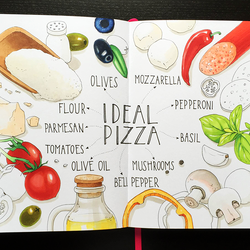 OLIVES
MOZZARELLA
FLOUR
PEPPERONI
IDEAL
PIZZA
PARMESAN
BASIL
TOMATOES
OLIVE OIL
MUSHROOMS
BELL PEPPER